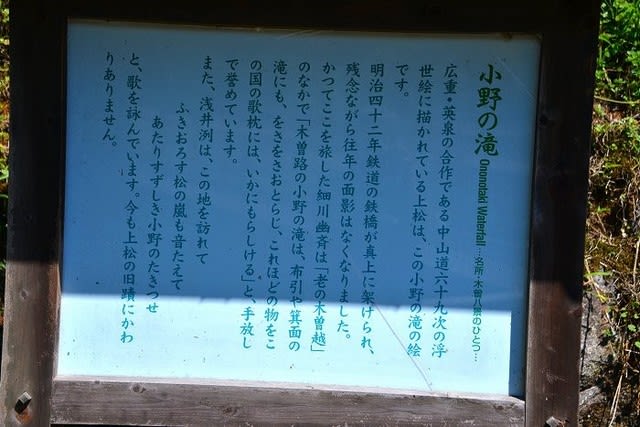 小野の滝 Ononotaki Waterfall …名所・木曽八景のひとつ…
広重・英泉の合作である中山道六十九次の浮
世絵に描かれている上松は、この小野の滝の絵
です。
明治四十二年鉄道の鉄橋が真上に架けられ、
残念ながら往年の面影はなくなりました。
かつてここを旅した細川幽斉は「老の木曽越」
のなかで「木曽路の小野の滝は、布引や箕面の
滝にも、をさをさおとらじ、これほどの物をこ
の国の歌枕には、いかにもらしける」と、手放し
で誉めています。
また、浅井洌は、この地を訪れて
ふきおろす松の嵐も音たえて
あたりすずしき小野のたきつせ
と、歌を詠んでいます。今も上松の旧蹟にかわ
りありません。